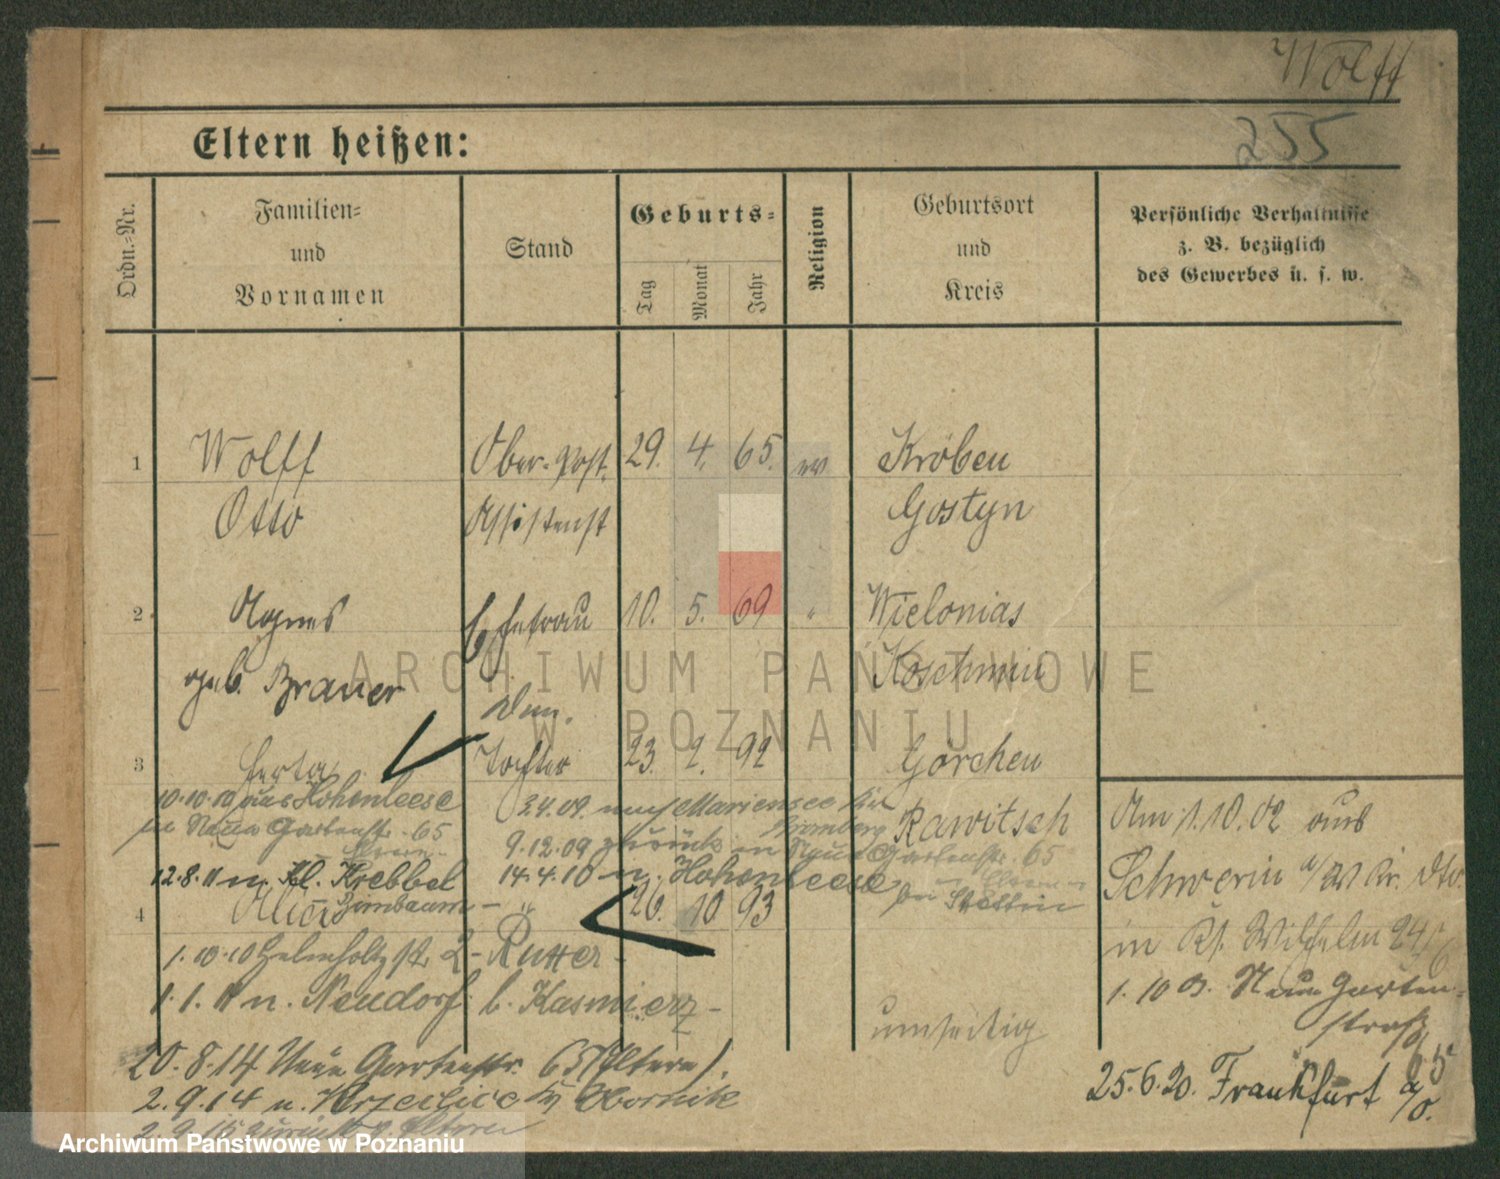 Wolff
255
Eltern heißen:
Ordn.-Nr.
Familien-
und
Vornamen
Stand
Geburts-
Tag
Monat
Jahr
Religion
Geburtsort
und
Kreis
Persönliche Verhältnisse
z. B. bezüglich
des Gewerbes u. s. w.
1 Wolff Ober-Post. 29. 4. 65. ev Kröben
Otto Assistenst Gostyn
2 Agnes Ehefrau 10. 5. 69 " Wielonias
geb. Brauer Koschmin
3 Herta Tochter 23. 2. 92 Görchen
Rawitsch
10.10.10 aus Hohenleese
Neue Gartenstr. 65
12.8.11 n. Kl. Krebbel
3.4.09. nach Mariensee Kr.
Bromberg
9.12.09 zurück in Neue Gartenstr. 65
14.4.10 n. Hohenleese
bei Stettin
4 Alice 26. 10 93
1.10.10 Helmholtzstr. 2 - Rutter -
1.1.11 n. Neudorf b. Kasmierz -
20.8.14 Neue Gartenstr. 65 (Eltern).
2.9.14 n. Obornik
zurück z. Eltern
umseitig
Am 1.10.02 aus
Schwerin a/W Kr. dto.
in Ks. Wilhelm
1. 10 03. Neue Garten-
straße 65
25.6.20. Frankfurt a/O.
ARCHIWUM PAŃSTWOWE
W POZNANIU
Archiwum Państwowe w Poznaniu